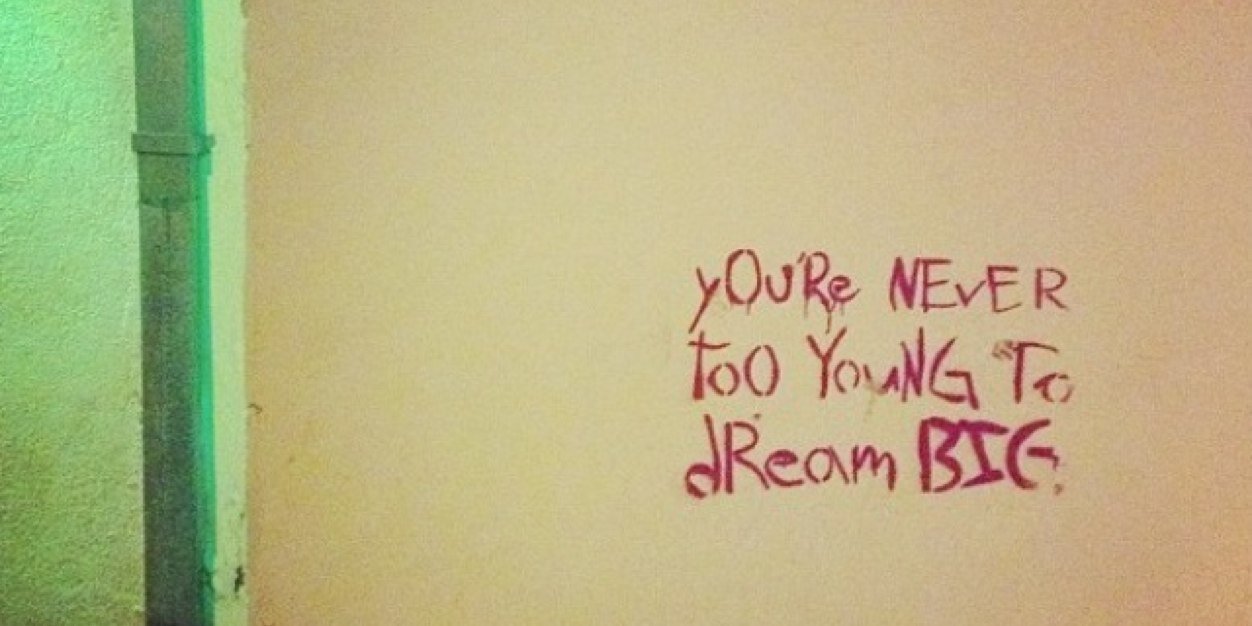 yOu'Re NEvER
Too YouNG To
dReam BIG.